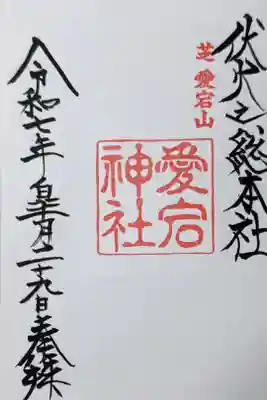 伏火之総本社
芝愛宕山
愛宕
神社
令和七年皐月二十九日奉拝